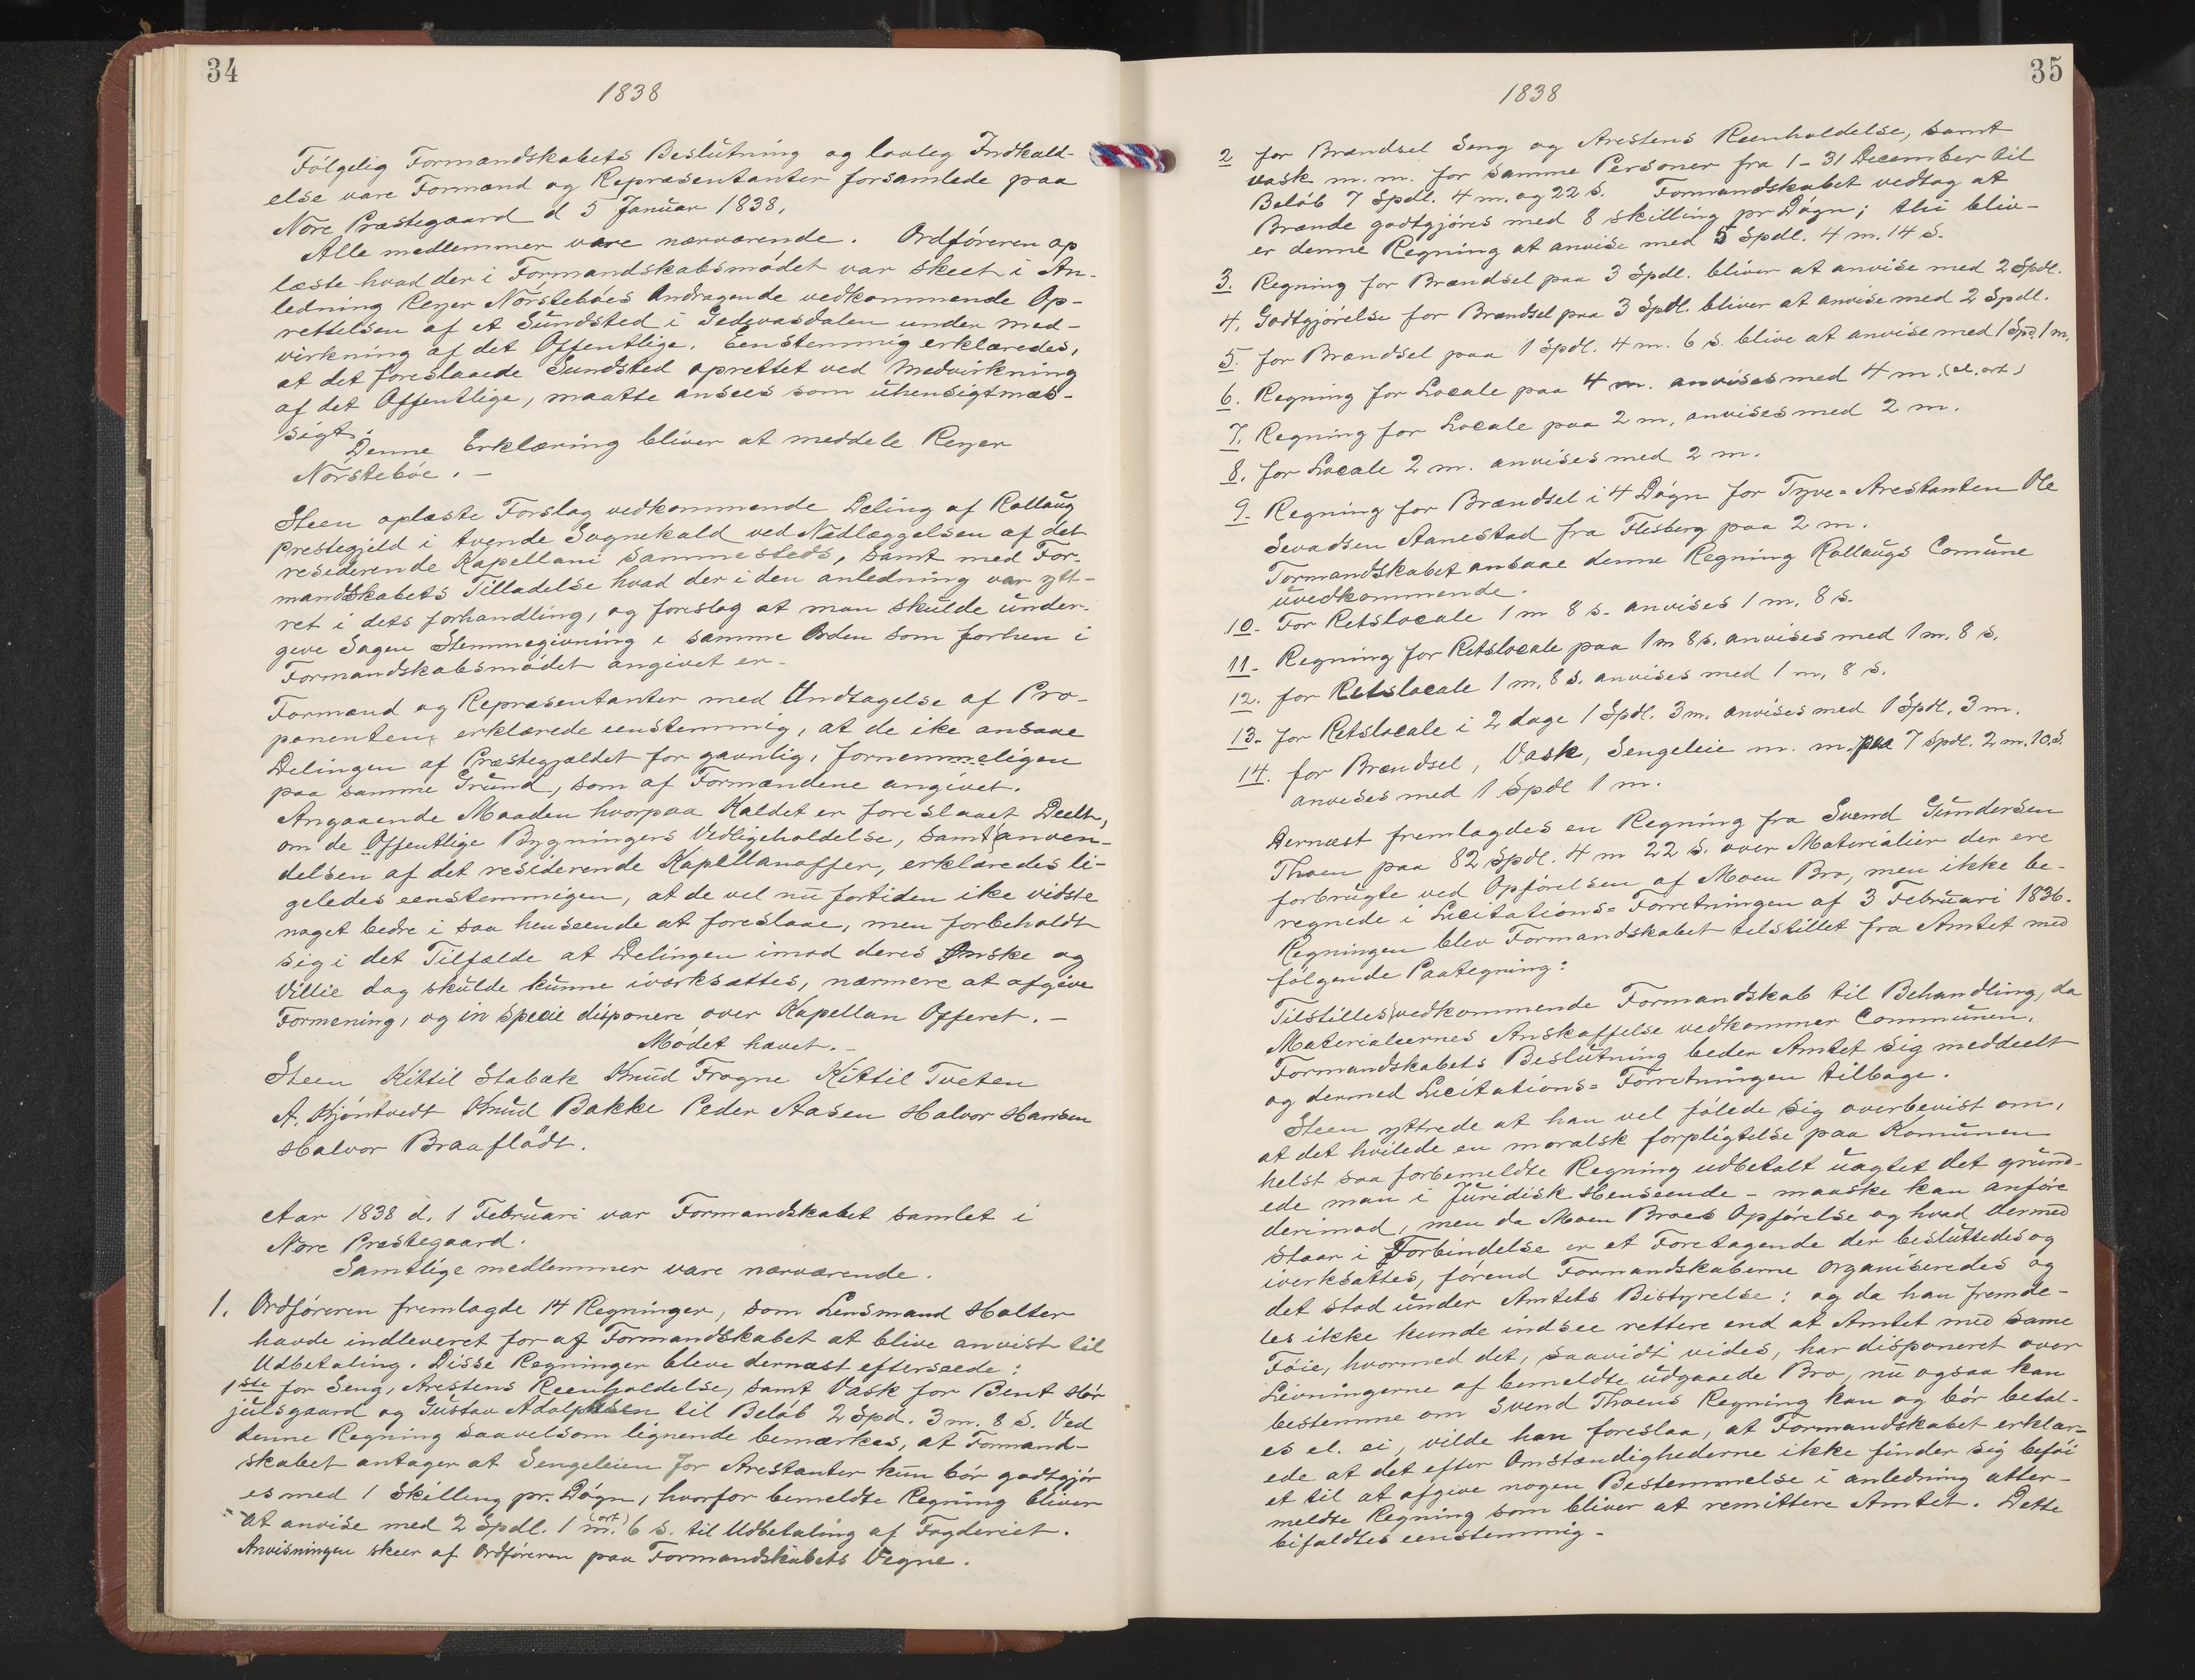 34
1838
Følgelig Formandskabets Beslutning og lovleg Indkald-
else vare Formænd og Repræsentanter forsamlede paa
Nore Præstegaard d 5 Januar 1838.
Alle medlemmer vare nærværende. Ordføreren op
læste hvad der i Formandskabsmødet var skeet i An-
ledning Reyer Nørstebøes Andragende vedkommende Op-
rettelsen af et Sundsted i Gedevasdalen under med-
virkning af det Offentlige. Eenstemmig erklæredes,
at det foreslaaede Sundsted oprettet ved Medvirkning
af det Offentlige, maatte ansees som uhensigtmæs-
sigt.
Denne Erklæring bliver at meddele Reyer
Nørstebøe. -
Steen oplæste Forslag vedkommende Deling af Rollaug
Prestegjeld i tvende Sognekald ved Nedlæggelsen af det
residerende Kapellani sammesteds, samt med For-
mandskabets Tilladelse hvad der i den anledning var ytt-
ret i dets forhandling, og foreslog at man skulde under-
give Sagen Stemmegivning i samme Orden som forhen i
Formandskabsmødet angivet er-
Formænd og Repræsentanter med Undtagelse af Pro-
ponenten, erklærede eenstemmig, at de ike ansaae
Delingen af Præstegjældet for gavnlig, fornemmeligen
paa samme Grund, som af Formændene angivet.
Angaaende Maaden hvorpaa Kaldet er foreslaaet Deelt,
om de Offentlige Bygningers Vedligeholdelse, samt anven-
delsen af det residerende Kapellanoffer, erklæredes li-
geledes eenstemmigen, at de vel nu fortiden ike vidste
noget bedre i saa henseende at foreslaae, men forbeholdt
sig i det Tilfælde at Delingen imod deres Ønske og
Villie dog skulde kunne iværksættes, nærmere at afgive
Formening, og in specie disponere over Kapellan Offeret. -
Mødet hævet. -
Steen Kittil Stabæk Knud Frogne Kittil Tveten
A. Kjøntvedt Knud Bakke Peder Aasen Halvor Hansen
Halvor Braaflådt.
Aar 1838 d. 1 Februari var Formandskabet samlet i
Nore Præstegaard.
Samtlige medlemmer vare nærværende.
1. Ordføreren fremlagde 14 Regninger, som Lensmand Halter
havde indleveret for af Formandskabet at blive anvist til
Udbetaling. Disse Regninger bleve dernæst efterseede:
1ste for Seng, Arestens Reenholdelse, samt Vask for Bent Hør
julsgaard og Gustav Adolphsen til Beløb 2 Spd. 3 m. 8 S. Ved
denne Regning saavelsom lignende bemærkes, at Formand-
skabet antager at Sengeleien for Arestanter kun bør godtgjør
es med 1 Skilling pr. Døgn, hvorfor bemeldte Regning bliver
at anvise med 2 Spdl. 1 m. (ort) 6 s. til Udbetaling af Fogderiet.
Anvisningen skeer af Ordføreren paa Formandskabets Vegne.
35
1838
2 for Brændsel Seng og Arestens Reenholdelse, samt
vask m.m. for samme Personer fra 1-31 December til
Beløb 7 Spdl. 4 m. og 22 s. Formandskabet vedtog at
Brænde godtgjøres med 8 skilling pr Døgn; thi bliv-
er denne Regning at anvise med 5 Spdl. 4 m. 14 s.
3. Regning for Brændsel paa 3 Spdl. bliver at anvise med 2 Spdl.
4. Godtgjørelse for Brændsel paa 3 Spdl. bliver at anvise med 2 Spdl.
5. for Brændsel paa 1 Spdl. 4 m. 6 s. blive at anvise med 1 Spd. 1 m.
6. Regning for Locale paa 4 m. anvises med 4 m. (el. ort)
7. Regning for Locale paa 2 m, anvises med 2 m.
8. for Locale 2 m. anvises med 2 m.
9. Regning for Brændsel i 4 Døgn for Tyve=Arestanten Ole
Sevadsen Aanestad fra Flesberg paa 2 m.
Formandskabet ansaae denne Regning Rollaugs Comune
uvedkommende.
10. For Retslocale 1 m 8 s. anvises 1 m. 8 s.
11. Regning for Retslocale paa 1 m 8 s. anvises med 1 m. 8 s.
12. for Retslocale 1 m. 8 s. anvises med 1 m, 8 s.
13. for Retslocale i 2 dage 1 Spdl. 3 m. anvises med 1 Spdl. 3 m.
14. for Brændsel, Vask, Sengeleie m. m. paa 7 Spdl. 2 m. 10. s.
anvises med 1 Spdl 1 m.
Dernæst fremlagdes en Regning fra Svend Gundersen
Thoen paa 82 Spdl. 4 m 22 s. over Materialier der ere
forbrugte ved Opførelsen af Moen Bro, men ikke be-
regnede i Licitations=Forretningen af 3 Februari 1836.
Regningen blev Formandskabet tilstillet fra Amtet med
følgende Paategning:
Tilstilles vedkommende Formandskab til Behandling, da
Materialeernes Anskaffelse vedkommer Communen.
Formandskabets Beslutning beder Amtet sig meddeelt
og dermed Licitations=Forretningen tilbage.
Steen yttrede at han vel følede sig overbevist om,
at det hvilede en moralsk forpligtelse paa Komunen
helst saa forbemeldte Regning udbetalt uagtet det grund-
ede man i Juridisk Henseende - maaske kan anføre
derimod, men da Moen Broes Opførelse og hvad dermed
staar i Forbindelse er et Foretagende der besluttedes og
iverksattes, førend Formandskaberne organiseredes og
det stod under Amtets Bistyrelse: og da han fremde-
les ikke kunde indsee rettere end at Amtet med same
Føie, hvormed det, saavidt vides, har disponeret over
Levningerne af bemeldte udgaaede Bro, nu ogsaa kan
bestemme om Svend Thoens Regning kan og bør betal-
es el. ei, vilde han foreslaa, at Formandskabet erklær-
ede at det efter Omstændighederne ikke finder sig beføi
et til at afgive nogen Bestemmelse i anledning atter-
meldte Regning som bliver at remittere Amtet. Dette
bifaldtes eenstemmig-